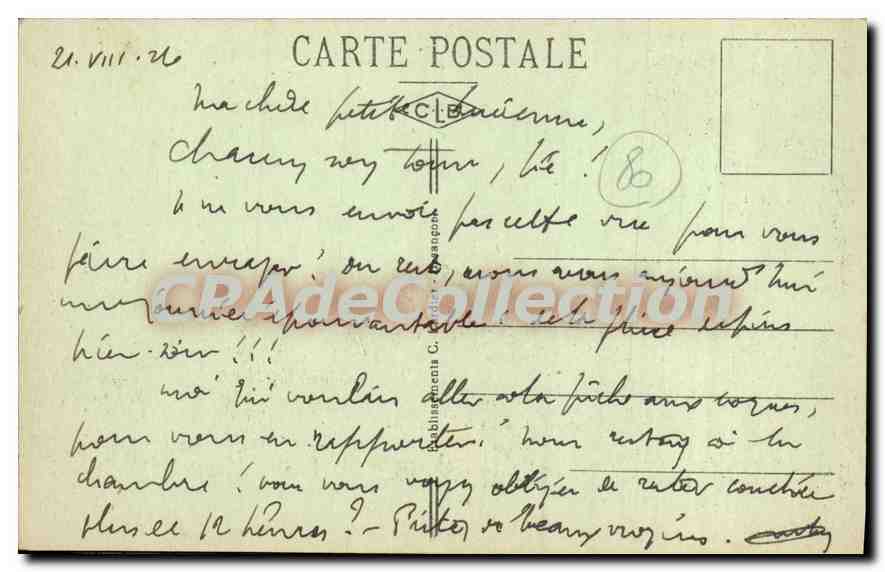 CARTE POSTALE
21. VIII. 26
Ma chère petite Lucienne,
C.L.B
Chacun son tour, hé !
80
Je ne vous envoie pas cette vue pour vous
faire enrager ! du reste, nous avons aujourd'hui
une journée épouvantable ! de la pluie depuis
hier soir !!!
moi qui voulais aller à la pêche aux coques,
pour vous en rapporter ! nous restons à la
chambre ! vous vous voyez obligée de rester couchée
plus de 12 heures ? -
Etablissements C. Lardier - Besançon
CPAdeCollection